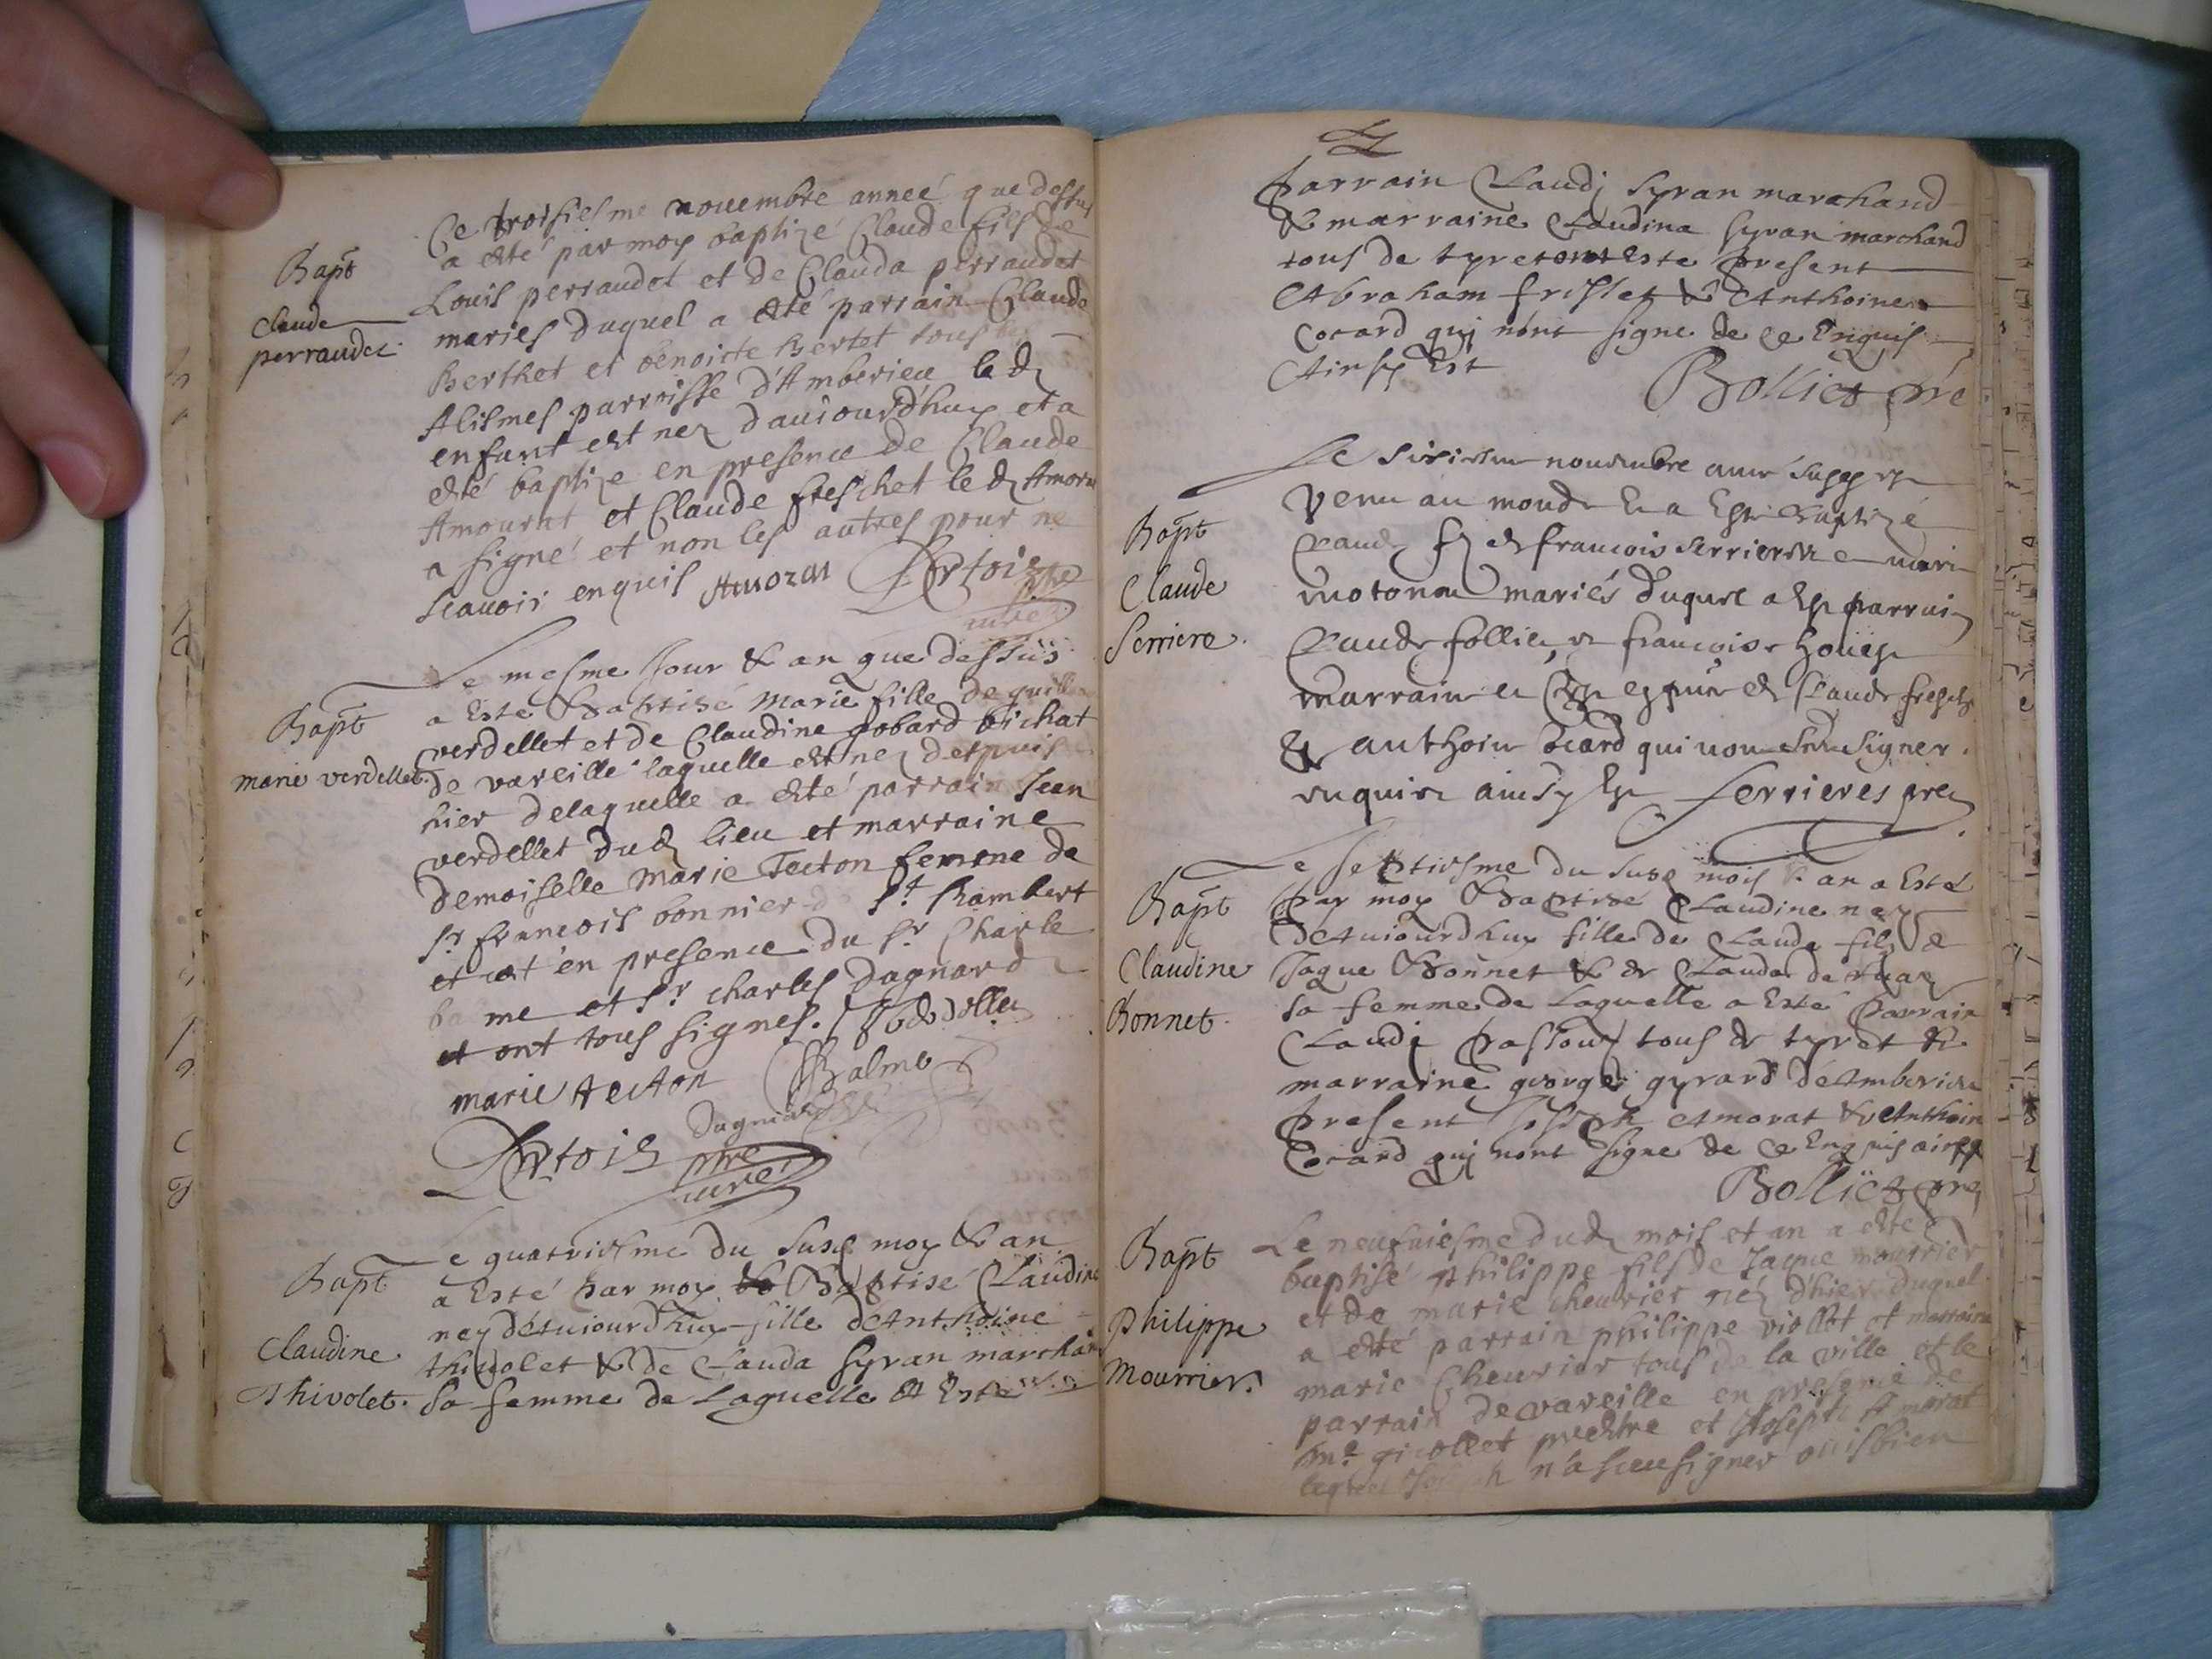 Bapt
Claude
perraudet
Ce troisiesme novembre anneé que dessus
a esté par moy baptizé Claude fils de
Louis perraudet et de Clauda perraudet
mariés duquel a esté parrain Claude
Berthet et benoiste Bertet tous
Alismes parroisse d'Amberieu led
enfant est nez daujourdhuy et a
esté baptize en presence de Claude
Amourat et Claude freschet led Amora
a signé et non les autres pour ne
scavoir enquis Amorat Dertois pbre
curé
Bapt
marie verdellet
Le mesme Jour & an que dessus
a Esté Baptisé Marie fille de
verdellet et de Claudine gobard bichat
de vareille laquelle est nez despuis
hier delaquelle a esté parrain Jean
verdellet dud lieu et marraine
demoiselle Marie Tecton femme de
sr francois bonnier de St Rambert
et cet en presence du sr Charle
bame et sr charles Dagnard
et ont tous signes. Verdellet
marie tecton Balme
Dagniard
Dertois pbre
curé
Bapt
Claudine
Thivolet.
Le quatriesme du susd moy & an
a Esté par moy Baptisé Claudine
ney désuiourdhuy fille dAnthoine
thivolet & de Clauda syran marchan
sa femme de Laquelle A Esté
parrain Claudj syran marchand
& marraine Claudina syran marchand
tous de tyret ont Este present
Abraham frislet & Anthoine
Cocard quj nont signe de ce Enquis
Ainsy Est
Bolliet pre
Bapt
Claude
Serriere.
Le sixiesme novembre anné susd est
venu au monde & a Esté Baptizé
Claude fz de francois serriere & de marie
motonne mariés duquel a Este parrain
Claude follie, et francoise
marraine en presence de Claude freschet
& anthoine Cocard qui nont sceu signer
enquire ainsy Est ferrieres pre
Bapt
Claudine
Bonnet.
Le septiesme du susd mois & an a Esté
par moy Baptisé Claudine ney
désuiourdhuy fille de Claude fils de
Jaque Bonnet & de Clauda de
sa femme de Laquelle a Esté parrain
Claudj pasloux tous de tyret &
marraine george gyrard dAmberieu
present Joseph Amorat & Anthoin
Cocard quj nont signé de ce Enquis ainsy
Bolliet pre
Bapt
Philippe
Mourrier.
Le neufviesme dud mois et an a esté
baptisé philippe fils de Jaque mourrier
et de marie cheurier néz dhier duquel
a esté parrain philippe viollet et marraine
marie Cheurier tous de la ville et le
parrain de vareille en presence de
mre givollet prestre et Joseph Amorat
lequel Joseph n'a sceu signer ouisbien